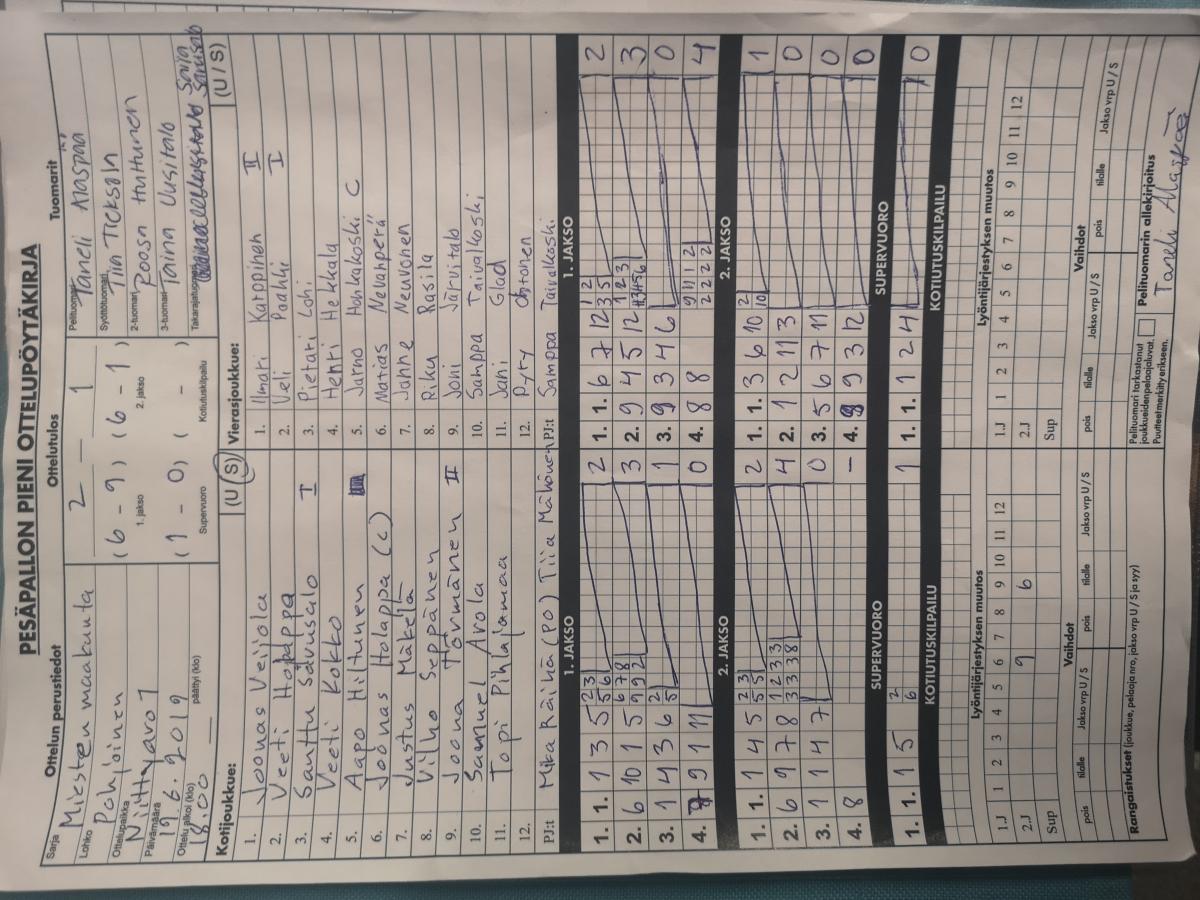 PESÄPALLON PIENI OTTELUPÖYTÄKIRJA
Ottelun perustiedot
Ottelutulos
Tuomarit
Sarja
Miesten maakauta
Lohko
Pohjoinen
Ottelupaikka
Niittyaro 1
Päivämäärä
19.6.2019
Ottelu alkoi (klo)
18.00
päättyi (klo)
2 — 1
(6 - 9) (6 - 1)
1. jakso
2. jakso
(1 - 0) ( - )
Supervuoro
Kotiutuskilpailu
Pelituomari
Taneli Alaspää
Syöttötuomari
2-tuomari
Roosa Huttunen
3-tuomari
Taina Uusitalo
Takarajatuomari
Kotijoukkue:
(U / S)
1. Joonas Veijola
2. Veeti Holappa
3. Santtu Savusalo I
4. Veeti Kokko
5. Aapo Hiltunen
6. Joonas Holappa (c)
7. Justus Mäkelä
8. Vilho Seppänen
9. Joona Törmänen II
10. Samuel Arola
11. Topi Pihlajamaa
12.
PJ:t Mika Räihä (PO) Tiia Mähönen
Vierasjoukkue:
(U / S)
1. Ilmari Karppinen II
2. Veli Paakki I
3. Pietari Lohi
4. Henri Hekkala
5. Jarno Honkakoski C
6. Matias Nevanperä
7. Janne Neuvonen
8. Riku Rasila
9. Joni Järvitalo
10. Samppa Taivalkoski
11. Jani Glad
12. Pyry Ohtonen
PJ:t Samppa Taivalkoski
1. JAKSO
1. 1. 1 3 5 2 3 5 6 2
2. 6 10 1 5 6 7 8 9 9 2 3
3. 1 4 3 6 2 5 1
4. 9 1 11 0
2. JAKSO
1. 1. 1 4 5 2 3 5 5 2
2. 6 9 7 8 1 2 3 3 3 3 3 8 4
3. 1 1 4 7 0
4. 8 -
SUPERVUORO
1. 1. 1 5 2 6 1
KOTIUTUSKILPAILU
1. JAKSO
1. 1. 6 7 12 1 2 3 5 2
2. 9 4 5 12 1 2 3 3
3. 9 3 4 6 0
4. 8 8 9 11 1 2 2 2 2 2 4
2. JAKSO
1. 1. 3 6 10 2 10 1
2. 1 2 11 3 0
3. 5 6 7 11 0
4. 9 9 3 12 0
SUPERVUORO
1. 1. 1 2 4 0
KOTIUTUSKILPAILU
Lyöntijärjestyksen muutos
1 2 3 4 5 6 7 8 9 10 11 12
1.J
2.J 9 6
Sup
Vaihdot
pois tilalle Jakso vrp U / S pois tilalle Jakso vrp U / S
Lyöntijärjestyksen muutos
1 2 3 4 5 6 7 8 9 10 11 12
1.J
2.J
Sup
Vaihdot
pois tilalle Jakso vrp U / S pois tilalle Jakso vrp U / S
Rangaistukset (joukkue, pelaaja nro, jakso vrp U / S ja syy)
Pelituomari tarkastanut
joukkueiden pelaajaluvat.
Puutteet merkitty erikseen.
Pelituomarin allekirjoitus
Taneli Alaspää